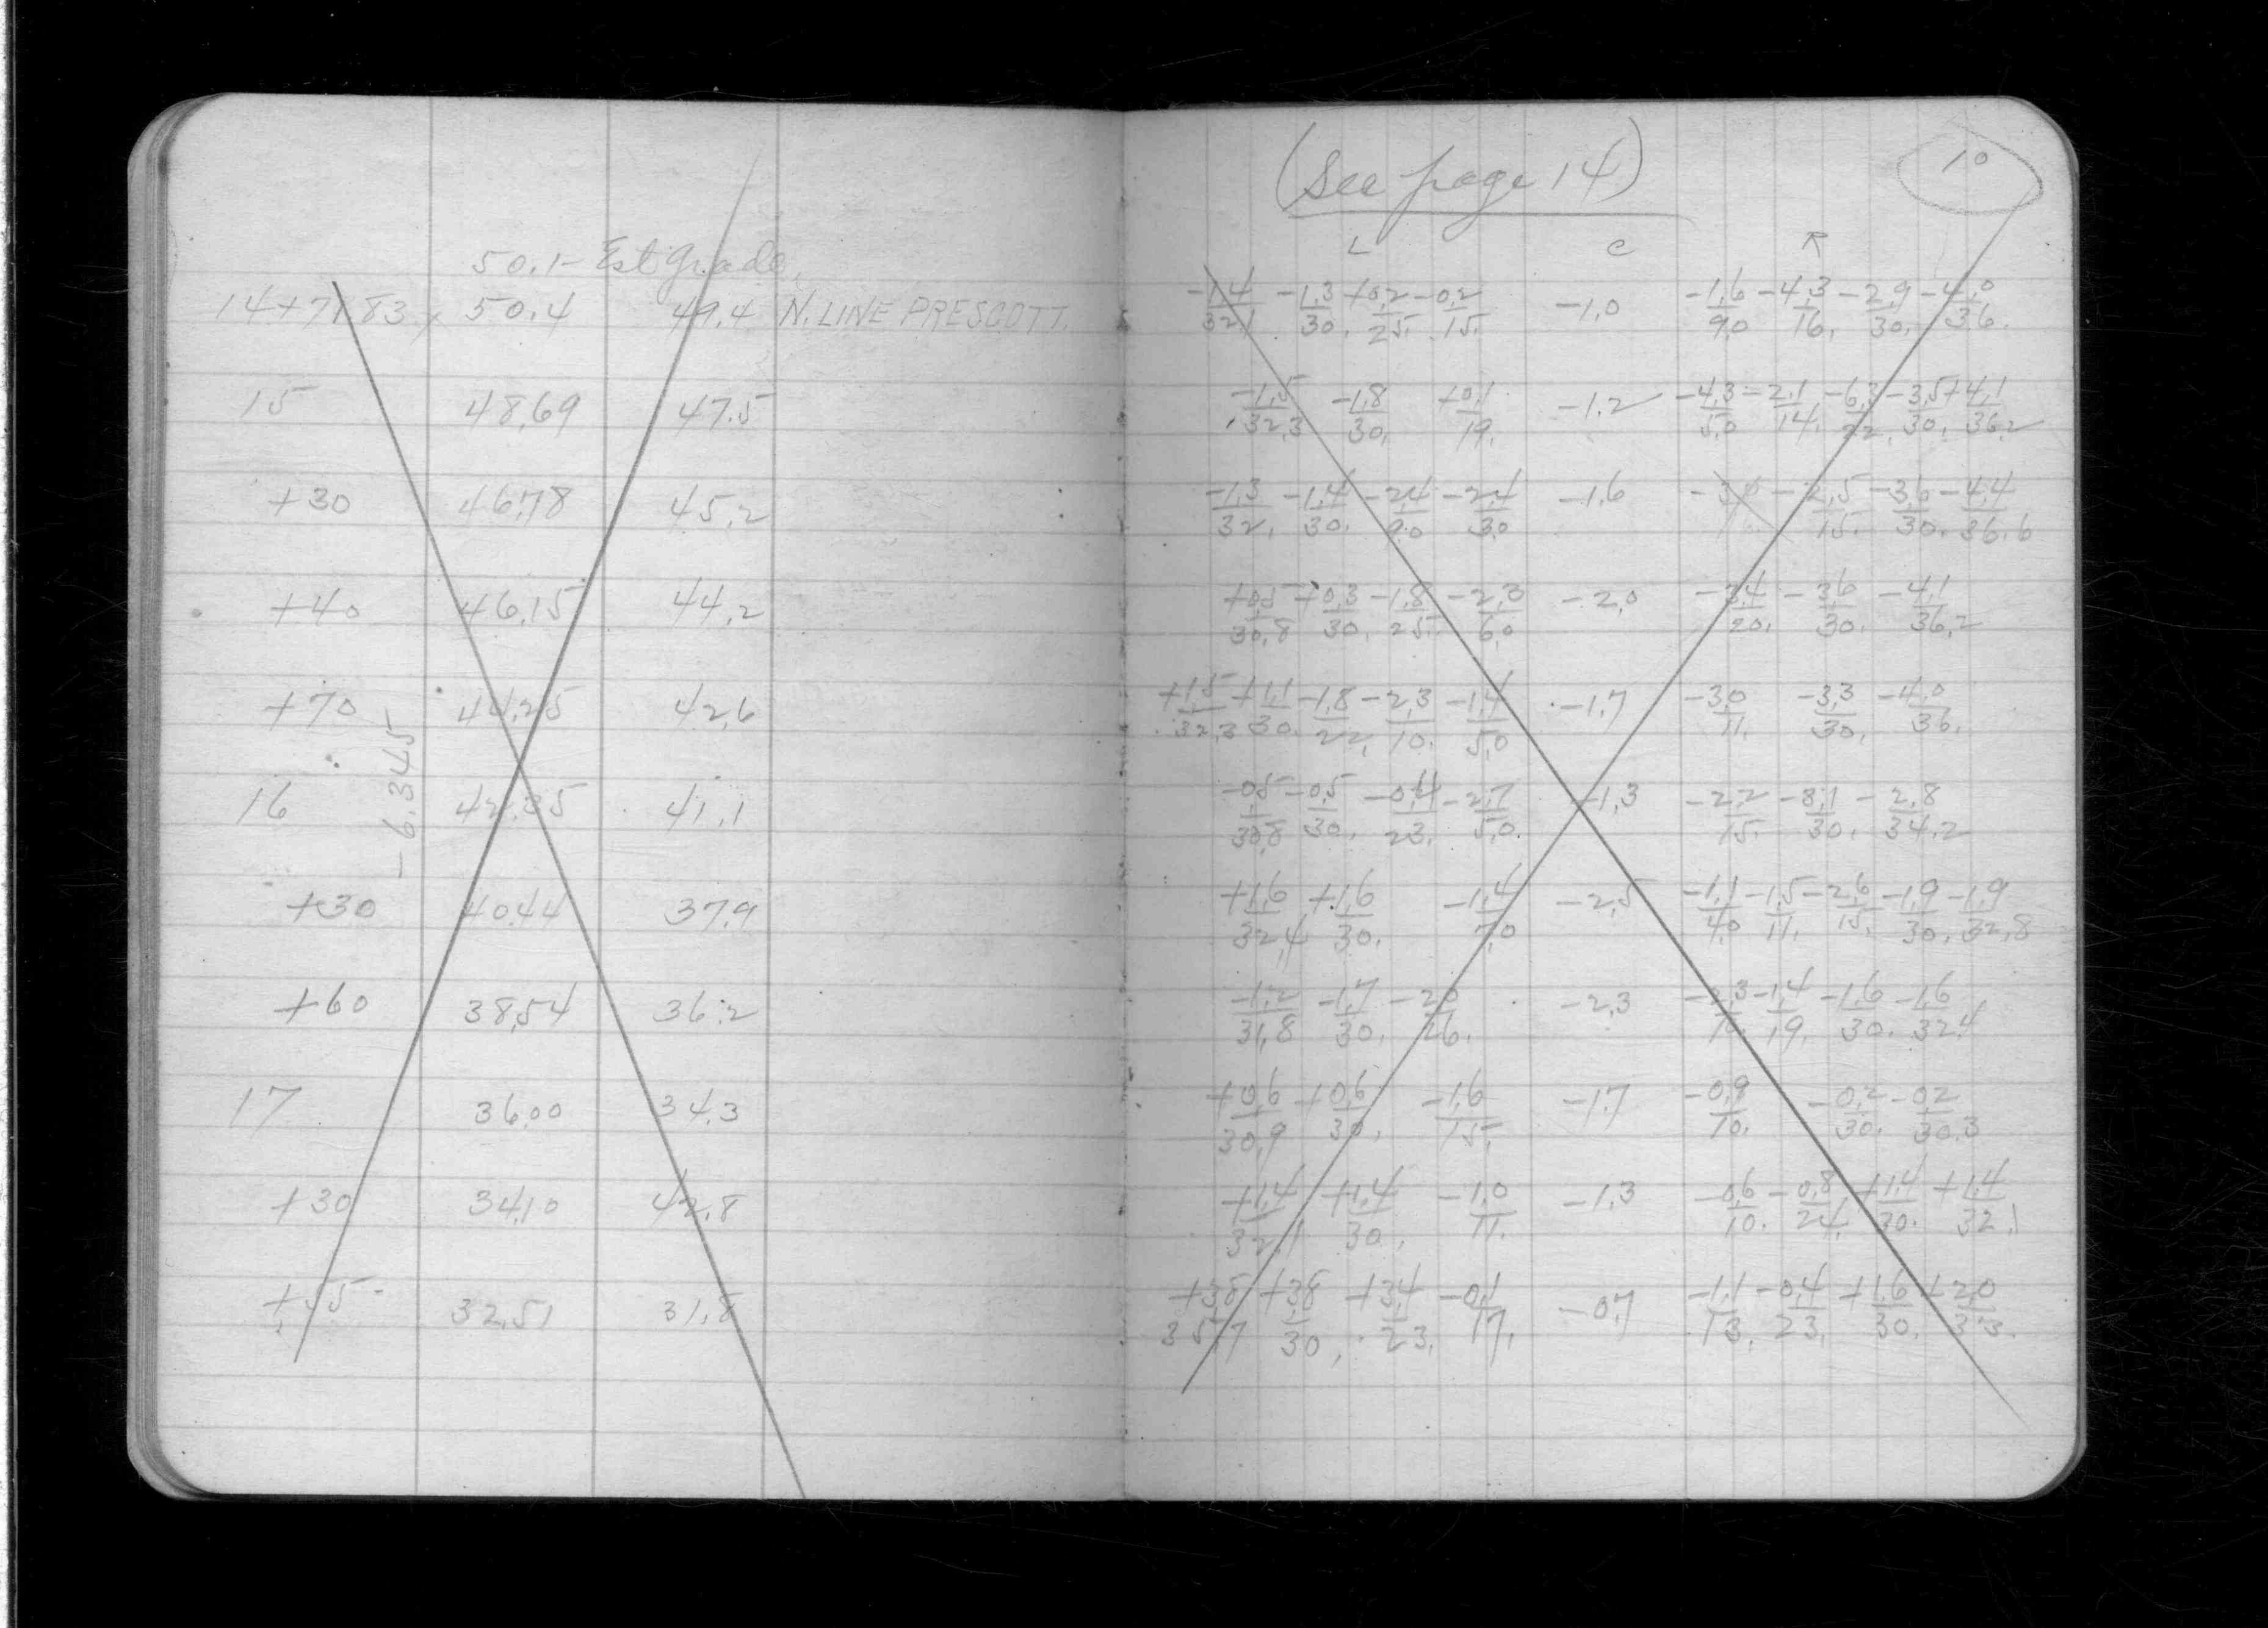 50.1 - Est Grade.
14+71.83 50.4 49.4 N. LINE PRESCOTT.
15 48.69 47.5
+30 46.78 45.2
+40 46.15 44.2
+70 44.25 42.6
-6.345
16 42.35 41.1
+30 40.44 37.9
+60 38.54 36.2
17 36.00 34.3
+30 34.10 42.8
+55 32.51 31.8
(See page 14)
10
L C R
-1.4/32.1 -1.3/30. +0.2/25. -0.2/15. -1.0 -1.6/9.0 -4.3/16. -2.9/30. -4.0/36.
-1.5/32.3 -1.8/30. +0.1/19. -1.2 -4.3/5.0 -2.1/14. -6.3/22. -3.5/30. +4.1/36.2
-1.3/32. -1.4/30. -2.4/9.0 -2.4/3.0 -1.6 -2.5/15. -3.6/30. -4.4/36.6
+0.5/30.8 +0.3/30. -1.8/25. -2.3/6.0 -2.0 -3.4/20. -3.6/30. -4.1/36.2
+1.5/32.3 +1.1/30. -1.8/22. -2.3/10. -1.4/5.0 -1.7 -3.0/11. -3.3/30. -4.0/36.
-0.5/30.8 -0.5/30. -0.4/23. -2.7/5.0. -1.3 -2.2/15. -3.1/30. -2.8/34.2
+1.6/32.4 +1.6/30. -1.4/7.0 -2.5 -1.1/4.0 -1.5/11. -2.6/15. -1.9/30. -1.9/32.8
-1.2/31.8 -1.7/30. -2.0/26. -2.3 -2.3/10. -1.4/19. -1.6/30. -1.6/32.4
+0.6/30.9 +0.6/30. -1.6/15. -1.7 -0.9/10. -0.2/30. -0.2/30.3
+1.4/32.1 +1.4/30. -1.0/11. -1.3 -0.6/10. -0.8/24. +1.4/30. +1.4/32.1
+3.8/35.7 +3.8/30. +3.4/23. -0.1/17. -0.7 -1.1/13. -0.4/23. +1.6/30. +2.0/33.